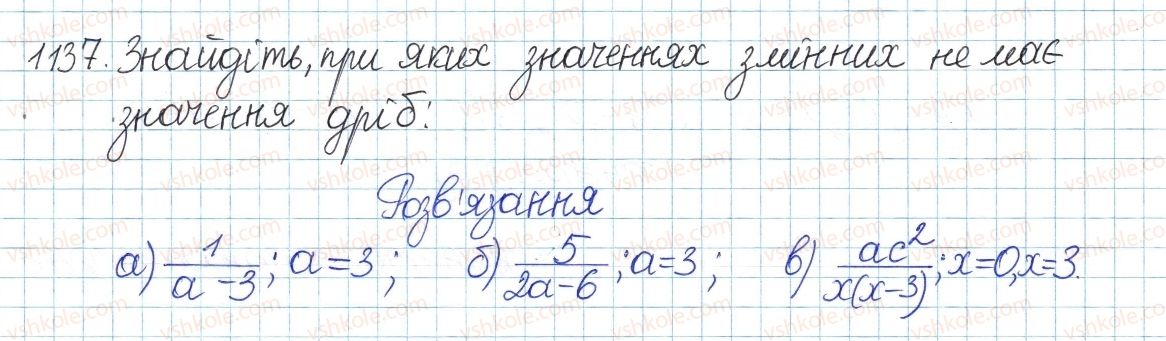 1137. Знайдіть, при яких значеннях змінних не має
значення дріб:
Розв'язання
а) 1/(a-3); a=3; б) 5/(2a-6); a=3; в) ac²/(x(x-3)); x=0, x=3.
vshkole.com